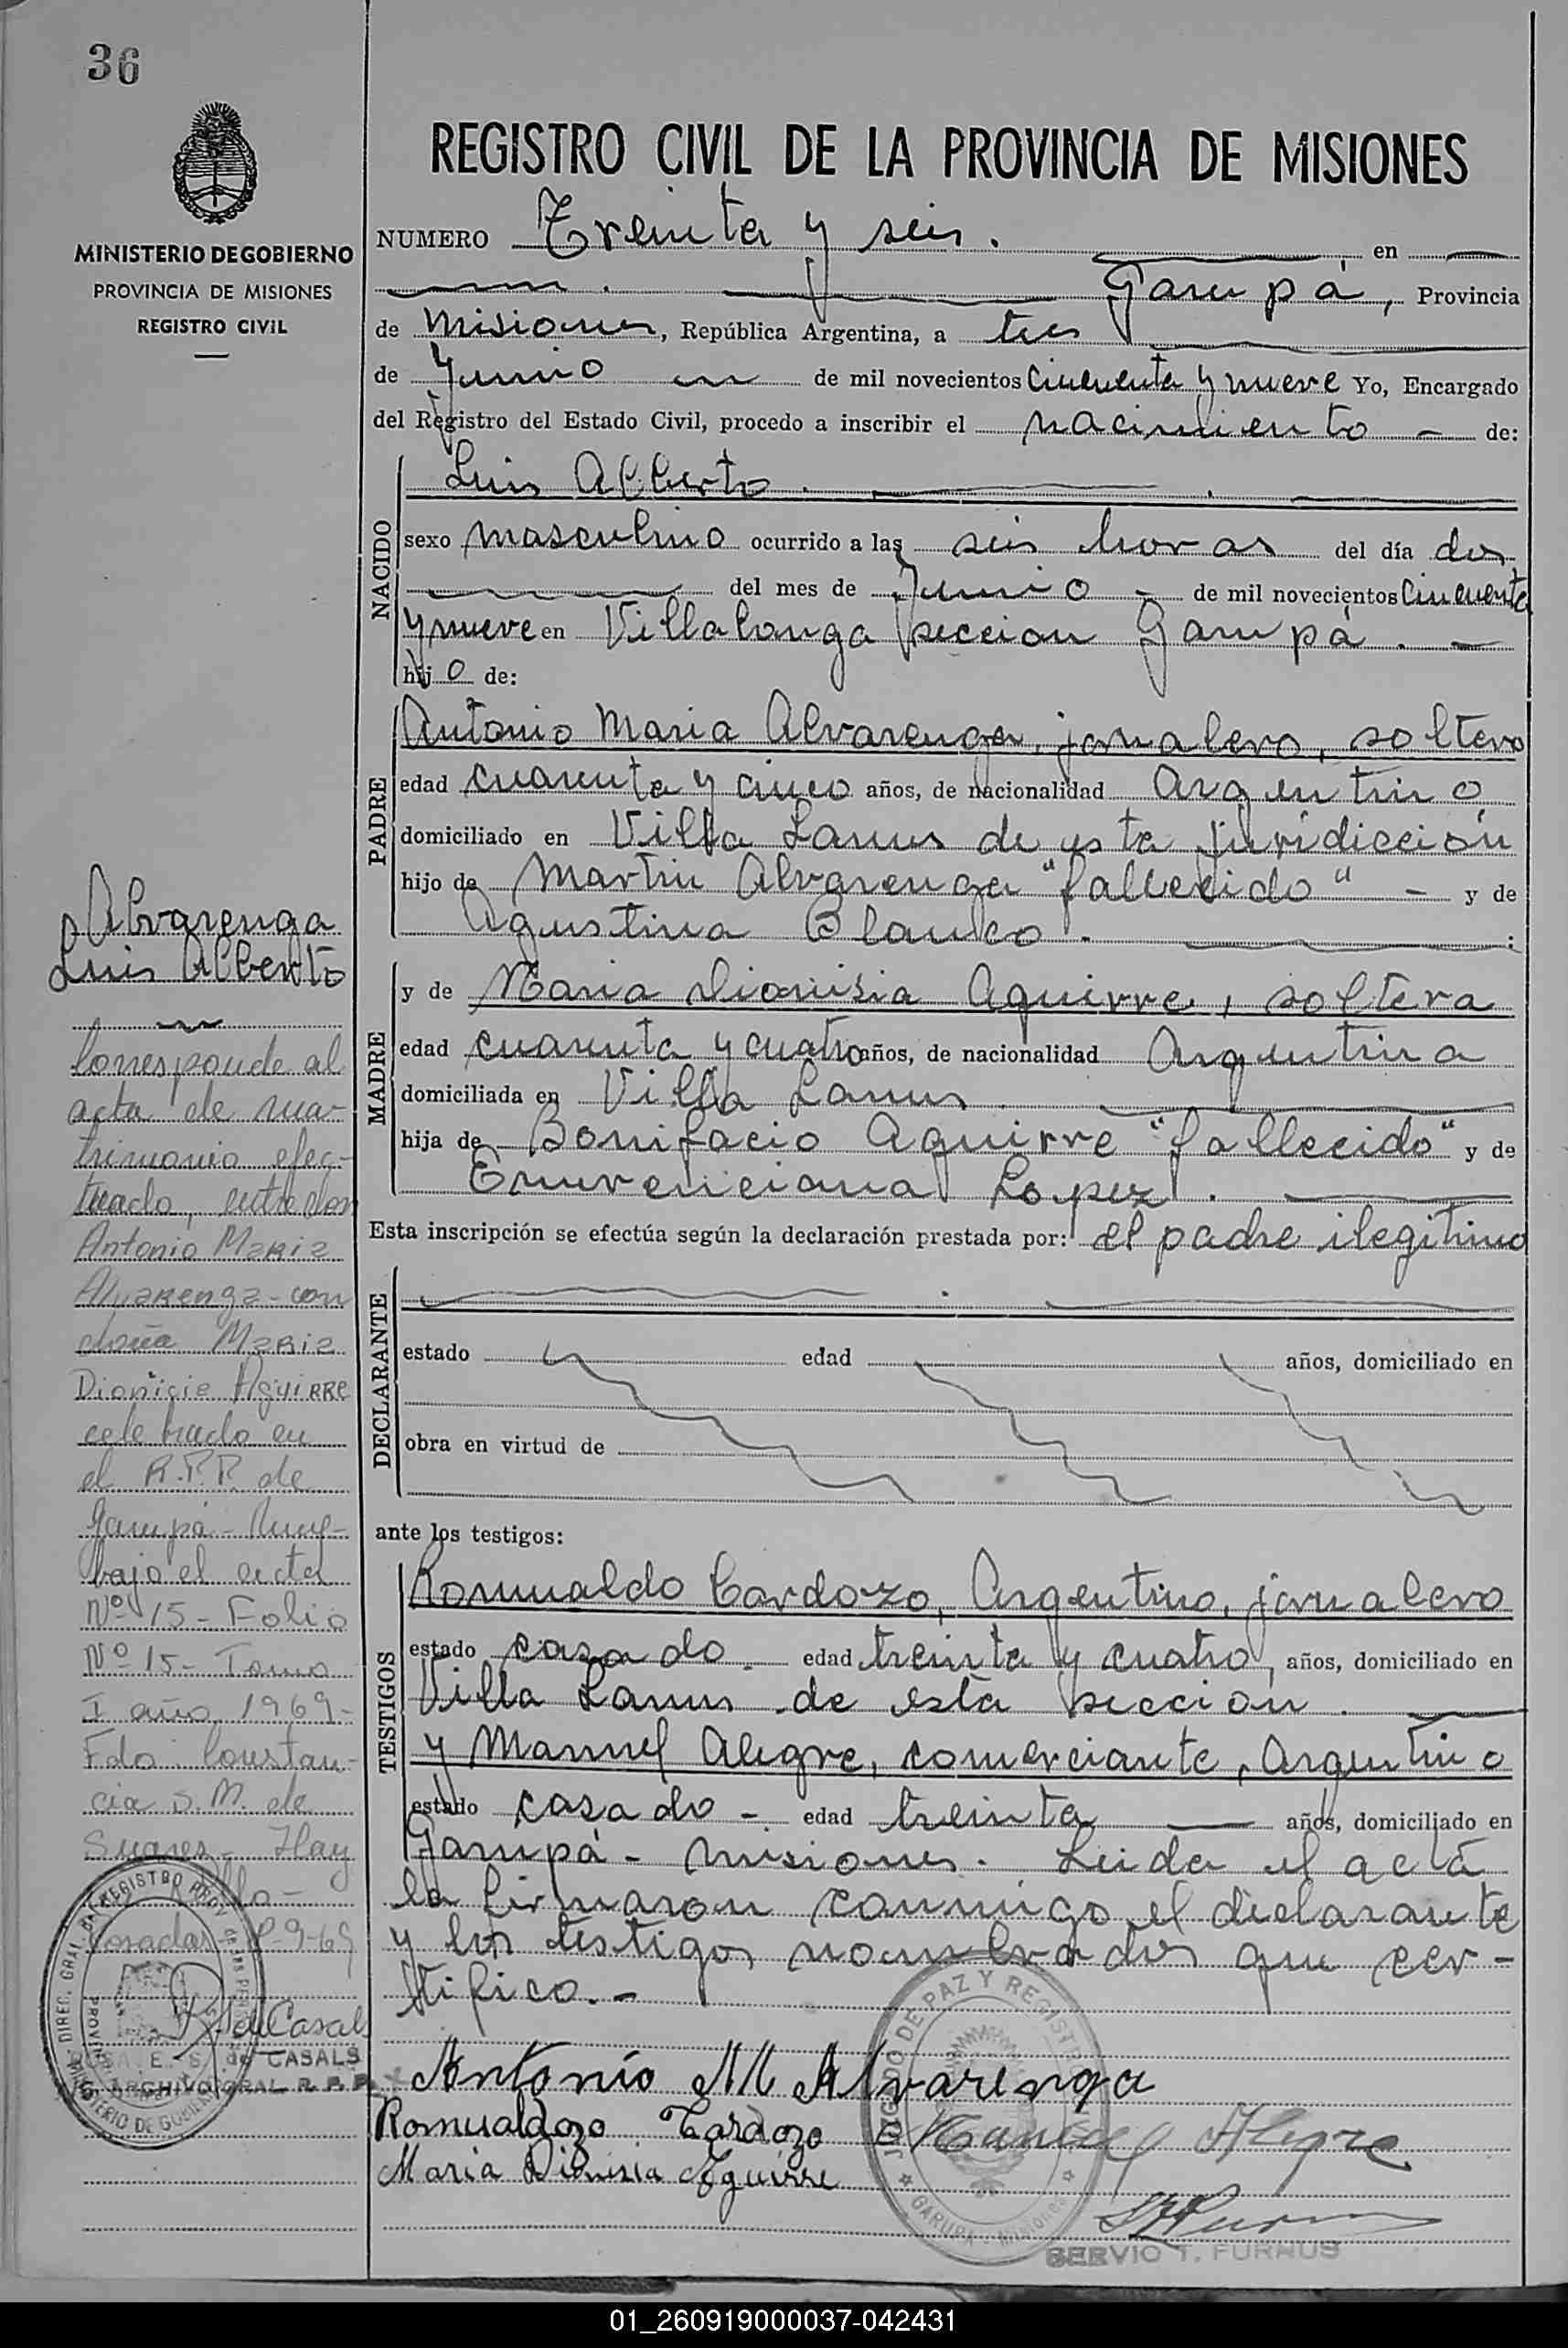 36
MINISTERIO DE GOBIERNO
PROVINCIA DE MISIONES
REGISTRO CIVIL
REGISTRO CIVIL DE LA PROVINCIA DE MISIONES
NUMERO Treinta y seis. en
Garupá, Provincia
de Misiones, República Argentina, a tres
de Junio de mil novecientos cincuenta y nueve Yo, Encargado
del Registro del Estado Civil, procedo a inscribir el nacimiento - de:
NACIDO
Luis Alberto.
sexo masculino ocurrido a las seis horas del día dos
del mes de Junio - de mil novecientos cincuenta
y nueve en Villalonga seccion Garupá. -
hijo de:
PADRE
Antonio Maria Alvarenga, jornalero, soltero
edad cuarenta y cinco años, de nacionalidad Argentino
domiciliado en Villa Lanus de esta juridicción
hijo de Martin Alvarenga "fallecido" - y de
Agustina Blanco.
MADRE
y de Maria Dionisia Aguirre, soltera
edad cuarenta y cuatro años, de nacionalidad Argentina
domiciliada en Villa Lanus
hija de Bonifacio Aguirre "fallecido" y de
Emerenciana Lopez.
Esta inscripción se efectúa según la declaración prestada por: el padre ilegitimo
DECLARANTE
estado edad años, domiciliado en
obra en virtud de
ante los testigos:
TESTIGOS
Romualdo Cardozo, Argentino, jornalero
estado casado - edad treinta y cuatro, años, domiciliado en
Villa Lanus de esta seccion.
y Manuel Alegre, comerciante, Argentino
estado casado - edad treinta años, domiciliado en
Garupá - Misiones. Leida el acta
la firmaron conmigo el declarante
y los testigos nombrados que cer-
tifico. -
Antonio M Alvarenga
Romualdozo Cardozo Manuel Alegre
Maria Dionisia Aguirre
JUZGADO DE PAZ Y REGISTRO
GARUPA - Misiones
SERVIO T. FURNUS
Alvarenga
Luis Alberto
Corresponde al
acta de ma-
trimonio efec-
tuado, entre don
Antonio Maria
Alvarenga - con
doña Maria
Dionicia Aguirre
celebrado en
el R.P.P. de
Garupá -
bajo el acta
Nº 15 - Folio
Nº 15 - Tomo
I año 1969 -
Fdo. Constan-
cia S. M. de
Suares - Hay
Posadas 9-69
E. S. de CASALS
ARCHIVO GRAL R.P.P.
01_260919000037-042431